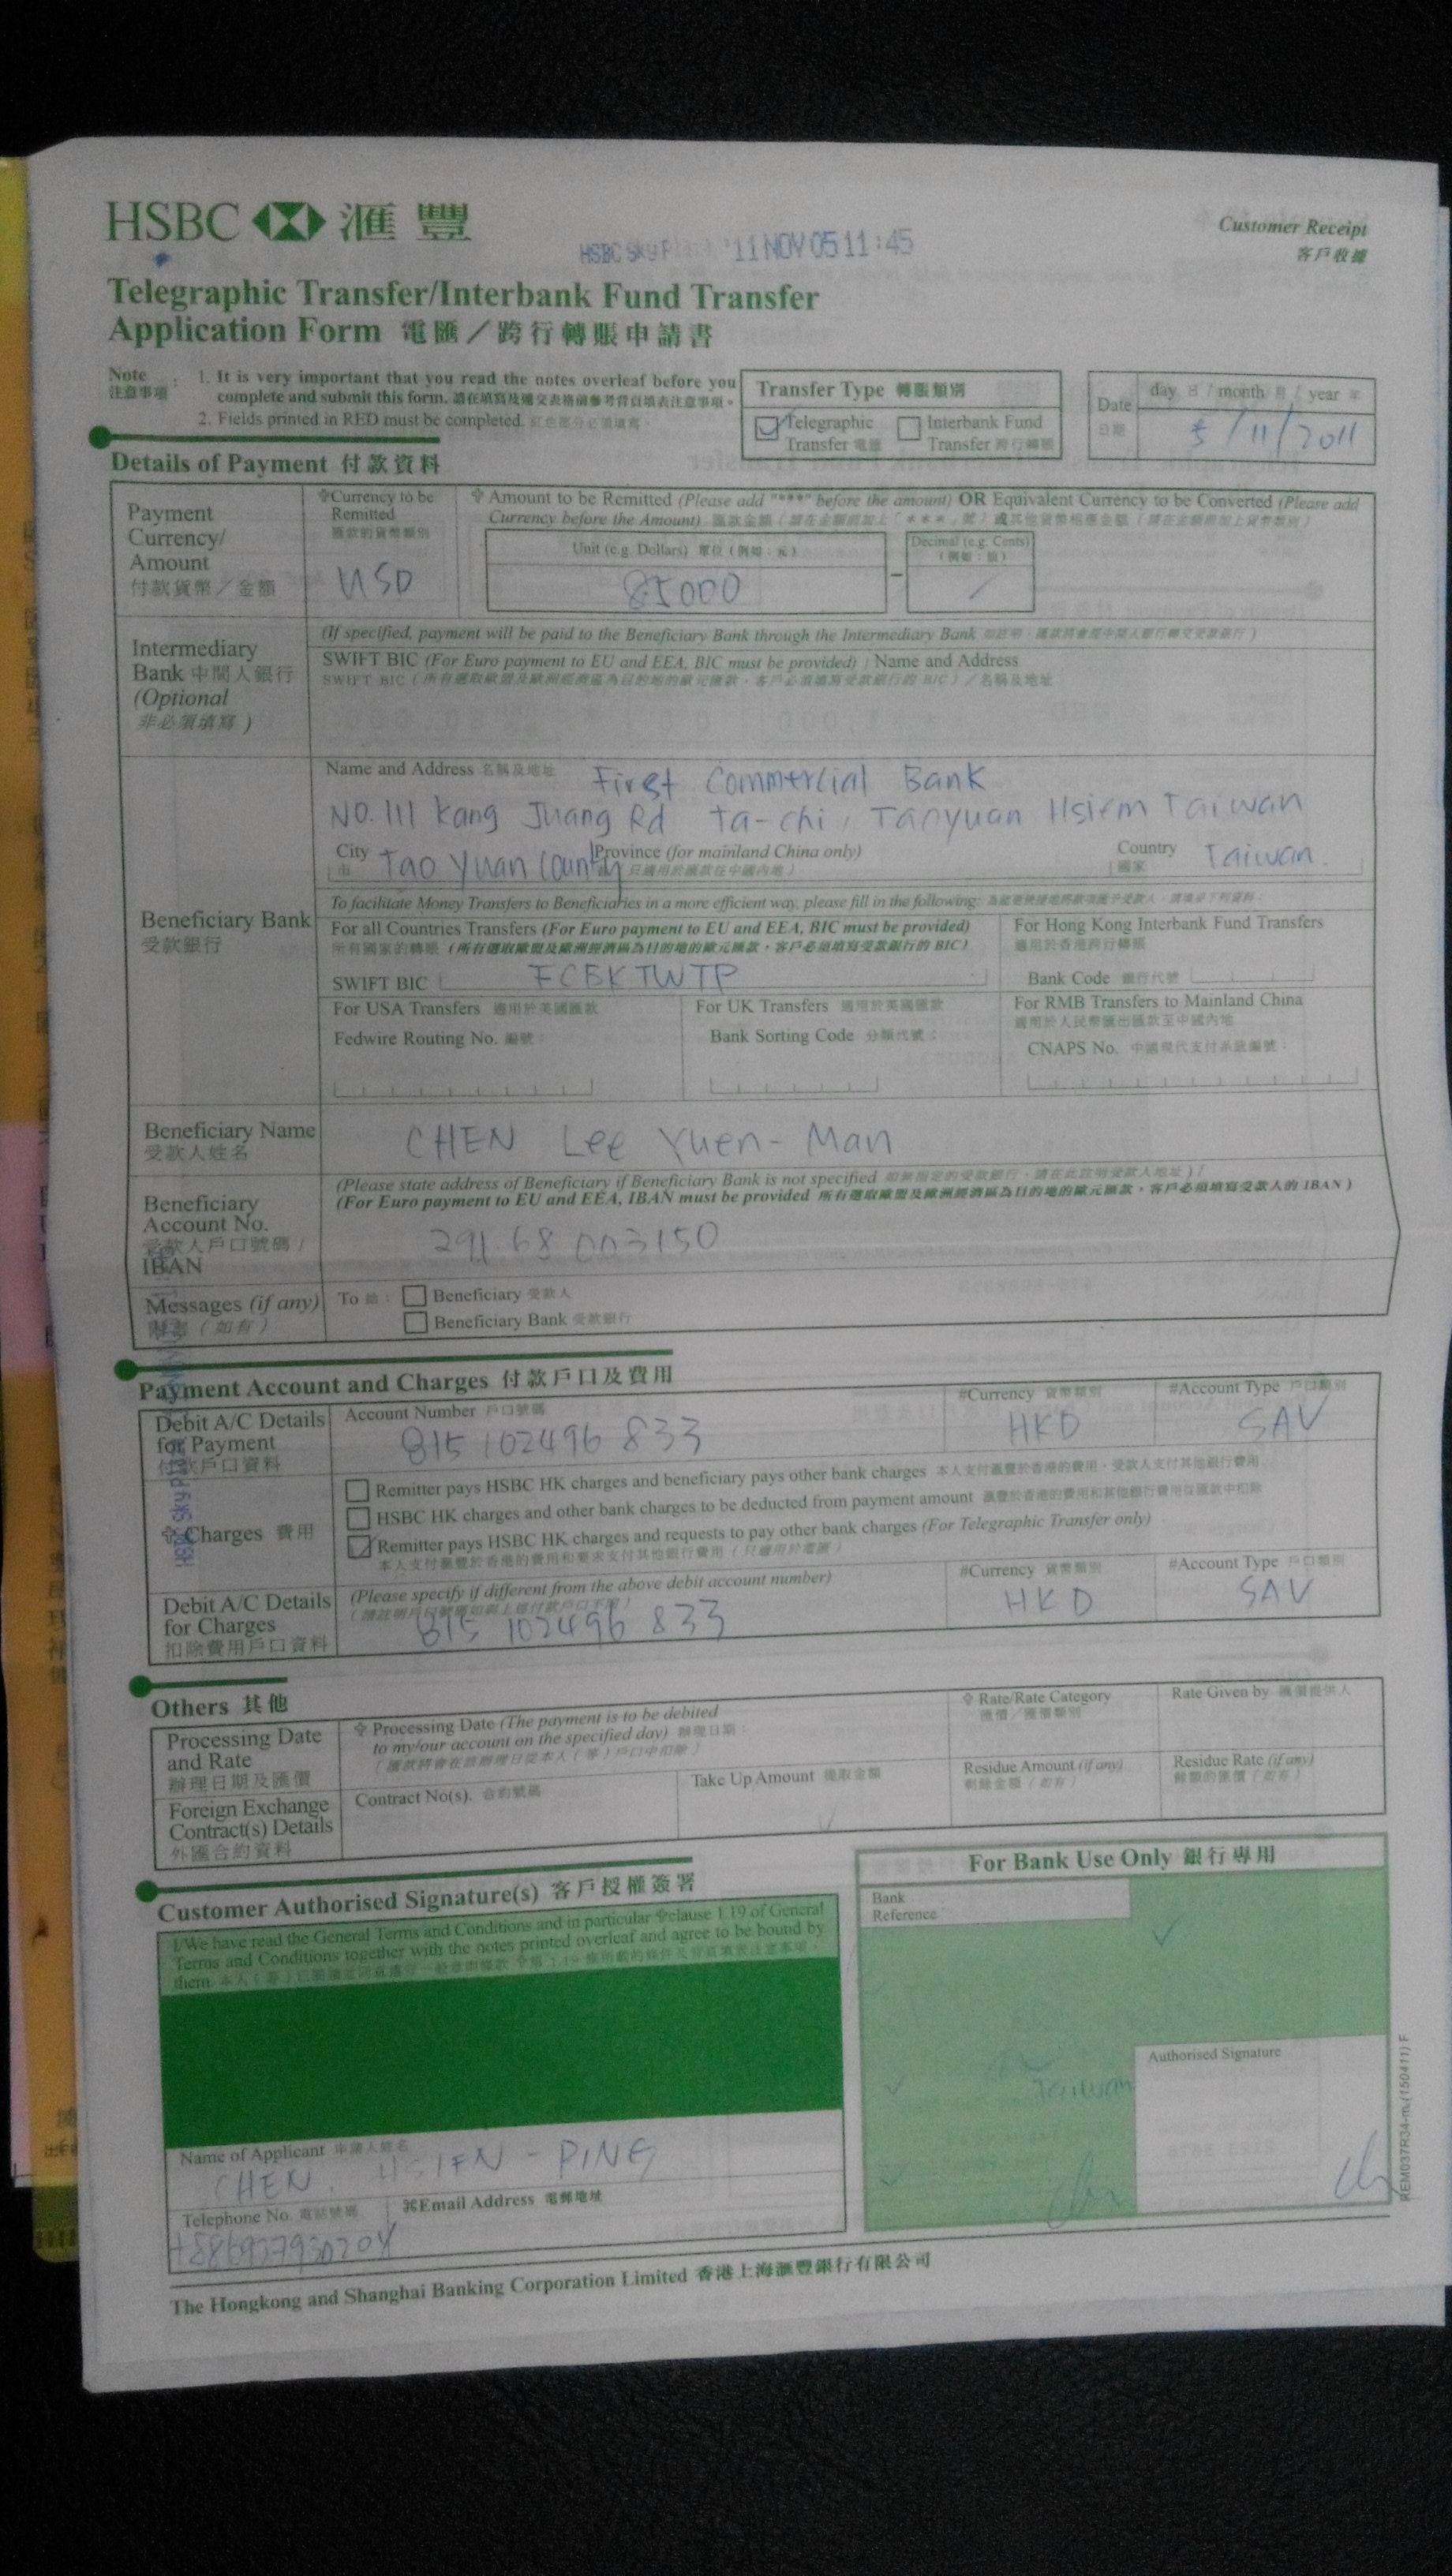 HSBC 滙豐
Customer Receipt
客戶收據
HSBC Sky P '11 NOV 05 11:45
Telegraphic Transfer/Interbank Fund Transfer
Application Form 電匯／跨行轉賬申請書
Note : 1. It is very important that you read the notes overleaf before you
注意事項 complete and submit this form. 請在填寫及遞交表格前參考背頁填表注意事項。
2. Fields printed in RED must be completed. 紅色部分必須填寫。
Transfer Type 轉賬類別
Telegraphic Interbank Fund
Transfer 電匯 Transfer 跨行轉賬
day 日 / month 月 / year 年
Date
日期
5/11/2011
Details of Payment 付款資料
Payment
Currency/
Amount
付款貨幣／金額
Currency to be
Remitted
匯款的貨幣類別
USD
Amount to be Remitted (Please add "***" before the amount) OR Equivalent Currency to be Converted (Please add
Currency before the Amount)
Unit (e.g. Dollars) 單位（例如：元）
85000
Decimal (e.g. Cents)
/
Intermediary
Bank 中間人銀行
(Optional
非必須填寫)
(If specified, payment will be paid to the Beneficiary Bank through the Intermediary Bank
SWIFT BIC (For Euro payment to EU and EEA, BIC must be provided) / Name and Address
SWIFT BIC（所有選取歐盟及歐洲經濟區為目的地的歐元匯款，客戶必須填寫受款銀行的 BIC）／名稱及地址
Beneficiary Bank
受款銀行
Name and Address 名稱及地址 First Commercial Bank
NO. 111 Kang Juang Rd Ta-chi, Taoyuan Hsien Taiwan
City 市 Tao Yuan County Province (for mainland China only) 只適用於匯款往中國內地） Country 國家 Taiwan.
To facilitate Money Transfers to Beneficiaries in a more efficient way, please fill in the following:
For all Countries Transfers (For Euro payment to EU and EEA, BIC must be provided)
所有國家的轉賬（所有選取歐盟及歐洲經濟區為目的地的歐元匯款，客戶必須填寫受款銀行的 BIC）
SWIFT BIC FCBKTWTP
For Hong Kong Interbank Fund Transfers
適用於香港跨行轉賬
Bank Code 銀行代號
For USA Transfers 適用於美國匯款
Fedwire Routing No. 編號：
For UK Transfers 適用於英國匯款
Bank Sorting Code 分類代號：
For RMB Transfers to Mainland China
適用於人民幣匯出匯款至中國內地
CNAPS No. 中國現代支付系統編號：
Beneficiary Name
受款人姓名
CHEN Lee Yuen-Man
Beneficiary
Account No.
受款人戶口號碼 /
IBAN
(Please state address of Beneficiary if Beneficiary Bank is not specified 如無指定的受款銀行，請在此註明受款人地址) /
(For Euro payment to EU and EEA, IBAN must be provided 所有選取歐盟及歐洲經濟區為目的地的歐元匯款，客戶必須填寫受款人的 IBAN)
291 68 003150
Messages (if any)
附言（如有）
To 給： Beneficiary 受款人
Beneficiary Bank 受款銀行
Payment Account and Charges 付款戶口及費用
Debit A/C Details
for Payment
付款戶口資料
Account Number 戶口號碼
815 102496 833
#Currency 貨幣類別
HKD
#Account Type 戶口類別
SAV
Charges 費用
Remitter pays HSBC HK charges and beneficiary pays other bank charges 本人支付滙豐於香港的費用，受款人支付其他銀行費用
HSBC HK charges and other bank charges to be deducted from payment amount 滙豐於香港的費用和其他銀行費用從匯款中扣除
Remitter pays HSBC HK charges and requests to pay other bank charges (For Telegraphic Transfer only)
本人支付滙豐於香港的費用和要求支付其他銀行費用（只適用於電匯）
Debit A/C Details
for Charges
扣除費用戶口資料
(Please specify if different from the above debit account number)
815 102496 833
#Currency 貨幣類別
HKD
#Account Type 戶口類別
SAV
Others 其他
Processing Date
and Rate
辦理日期及匯價
Processing Date (The payment is to be debited
to my/our account on the specified day) 辦理日期：
Rate/Rate Category
匯價／匯價類別
Rate Given by 匯價提供人
Foreign Exchange
Contract(s) Details
外匯合約資料
Contract No(s). 合約號碼
Take Up Amount 提取金額
Residue Amount (if any)
剩餘金額（如有）
Residue Rate (if any)
餘額的匯價（如有）
Customer Authorised Signature(s) 客戶授權簽署
I/We have read the General Terms and Conditions and in particular clause 1.19 of General
Terms and Conditions together with the notes printed overleaf and agree to be bound by
them.
Name of Applicant 申請人姓名
CHEN. HSIEN - PING
Telephone No. 電話號碼
⌘Email Address 電郵地址
For Bank Use Only 銀行專用
Bank
Reference
Taiwan
Authorised Signature
The Hongkong and Shanghai Banking Corporation Limited 香港上海滙豐銀行有限公司
REM037R34-m (150411) F